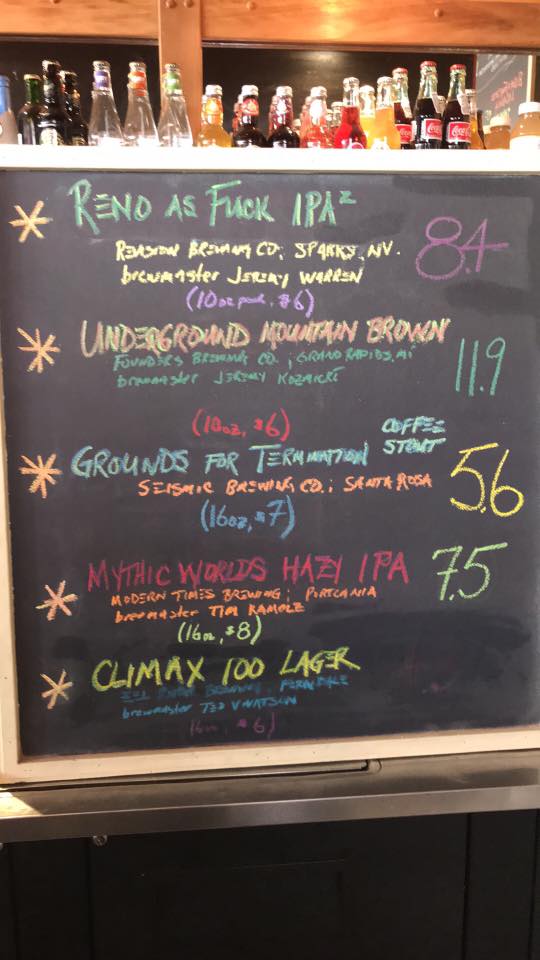 RENO AS FUCK IPA²
8.4
REVISION BREWING CO; SPARKS, NV.
brewmaster JEREMY WARREN
(10oz pour, $6)
UNDERGROUND MOUNTAIN BROWN
11.9
FOUNDERS BREWING CO.; GRAND RAPIDS, MI
brewmaster JEREMY KOZMICKI
(10oz, $6)
COFFEE
STOUT
GROUNDS FOR TERMINATION
5.6
SEISMIC BREWING CO.; SANTA ROSA
(16oz, $7)
MYTHIC WORLDS HAZY IPA
7.5
MODERN TIMES BREWING; PORTLANIA
brewmaster TIM KAMOLZ
(16oz, $8)
CLIMAX 100 LAGER
EEL RIVER BREWING, FERNDALE
brewmaster TED VIVATSON
16oz, $6)
Coca-Cola
Coca-Cola